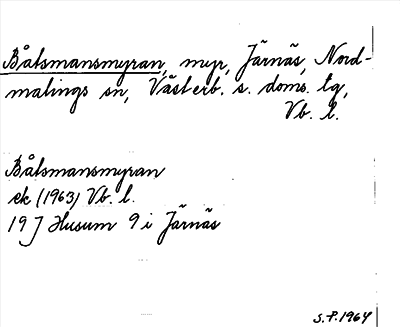 Båtsmansmyran, myr, Järnäs, Nord-
malings sn, Västerb. s. doms. tg,
Vb. l.
Båtsmansmyran
ek (1963) Vb. l.
19 J Husum 9 i Järnäs
S.P. 1964